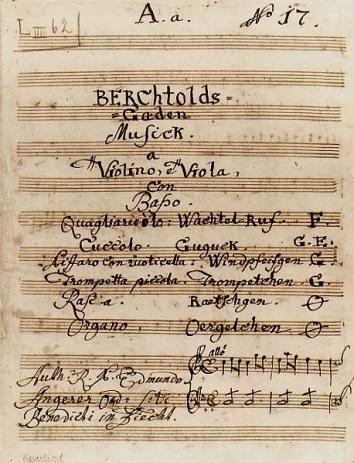 A. a.
No 17.
L III 62
BERChtolds =
= Gaden
Musick.
a
Violino, 2 Viola,
Con
Baßo.
Quagliaricolo: Wachtel-Ruf. F.
Cuccolo. Guguck. G. E.
Ciffaro con ruoticella: Windpfeifgen G.
Trompetta piccola. Trompetchen. G.
Rasca. Raetschgen.
Organo. Oergelchen.
Auth: R. P. Edmundo
Angerer Ord: Sti:
Benedicti in Fiecht.